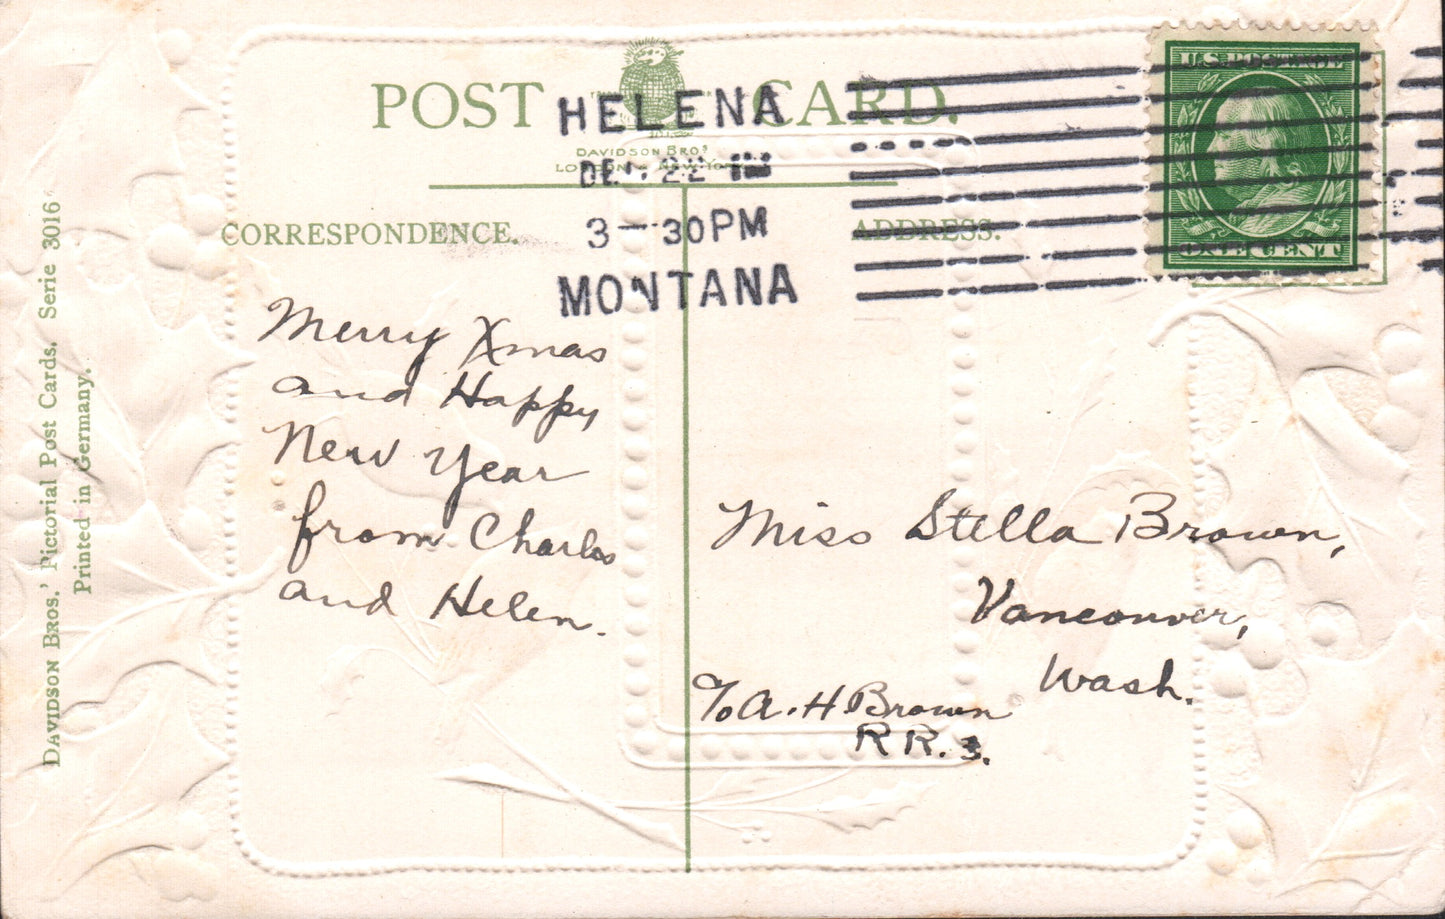 POST CARD.
DAVIDSON BROS.
LONDON & NEW YORK
CORRESPONDENCE.
ADDRESS.
HELENA
DEC 22
3-30PM
MONTANA
U.S. POSTAGE
ONE CENT
Merry Xmas
and Happy
New Year
from Charles
and Helen.
Miss Stella Brown,
Vancouver,
Wash.
℅ A. H Brown
R R. 3.
DAVIDSON BROS.' Pictorial Post Cards. Serie 3016
Printed in Germany.